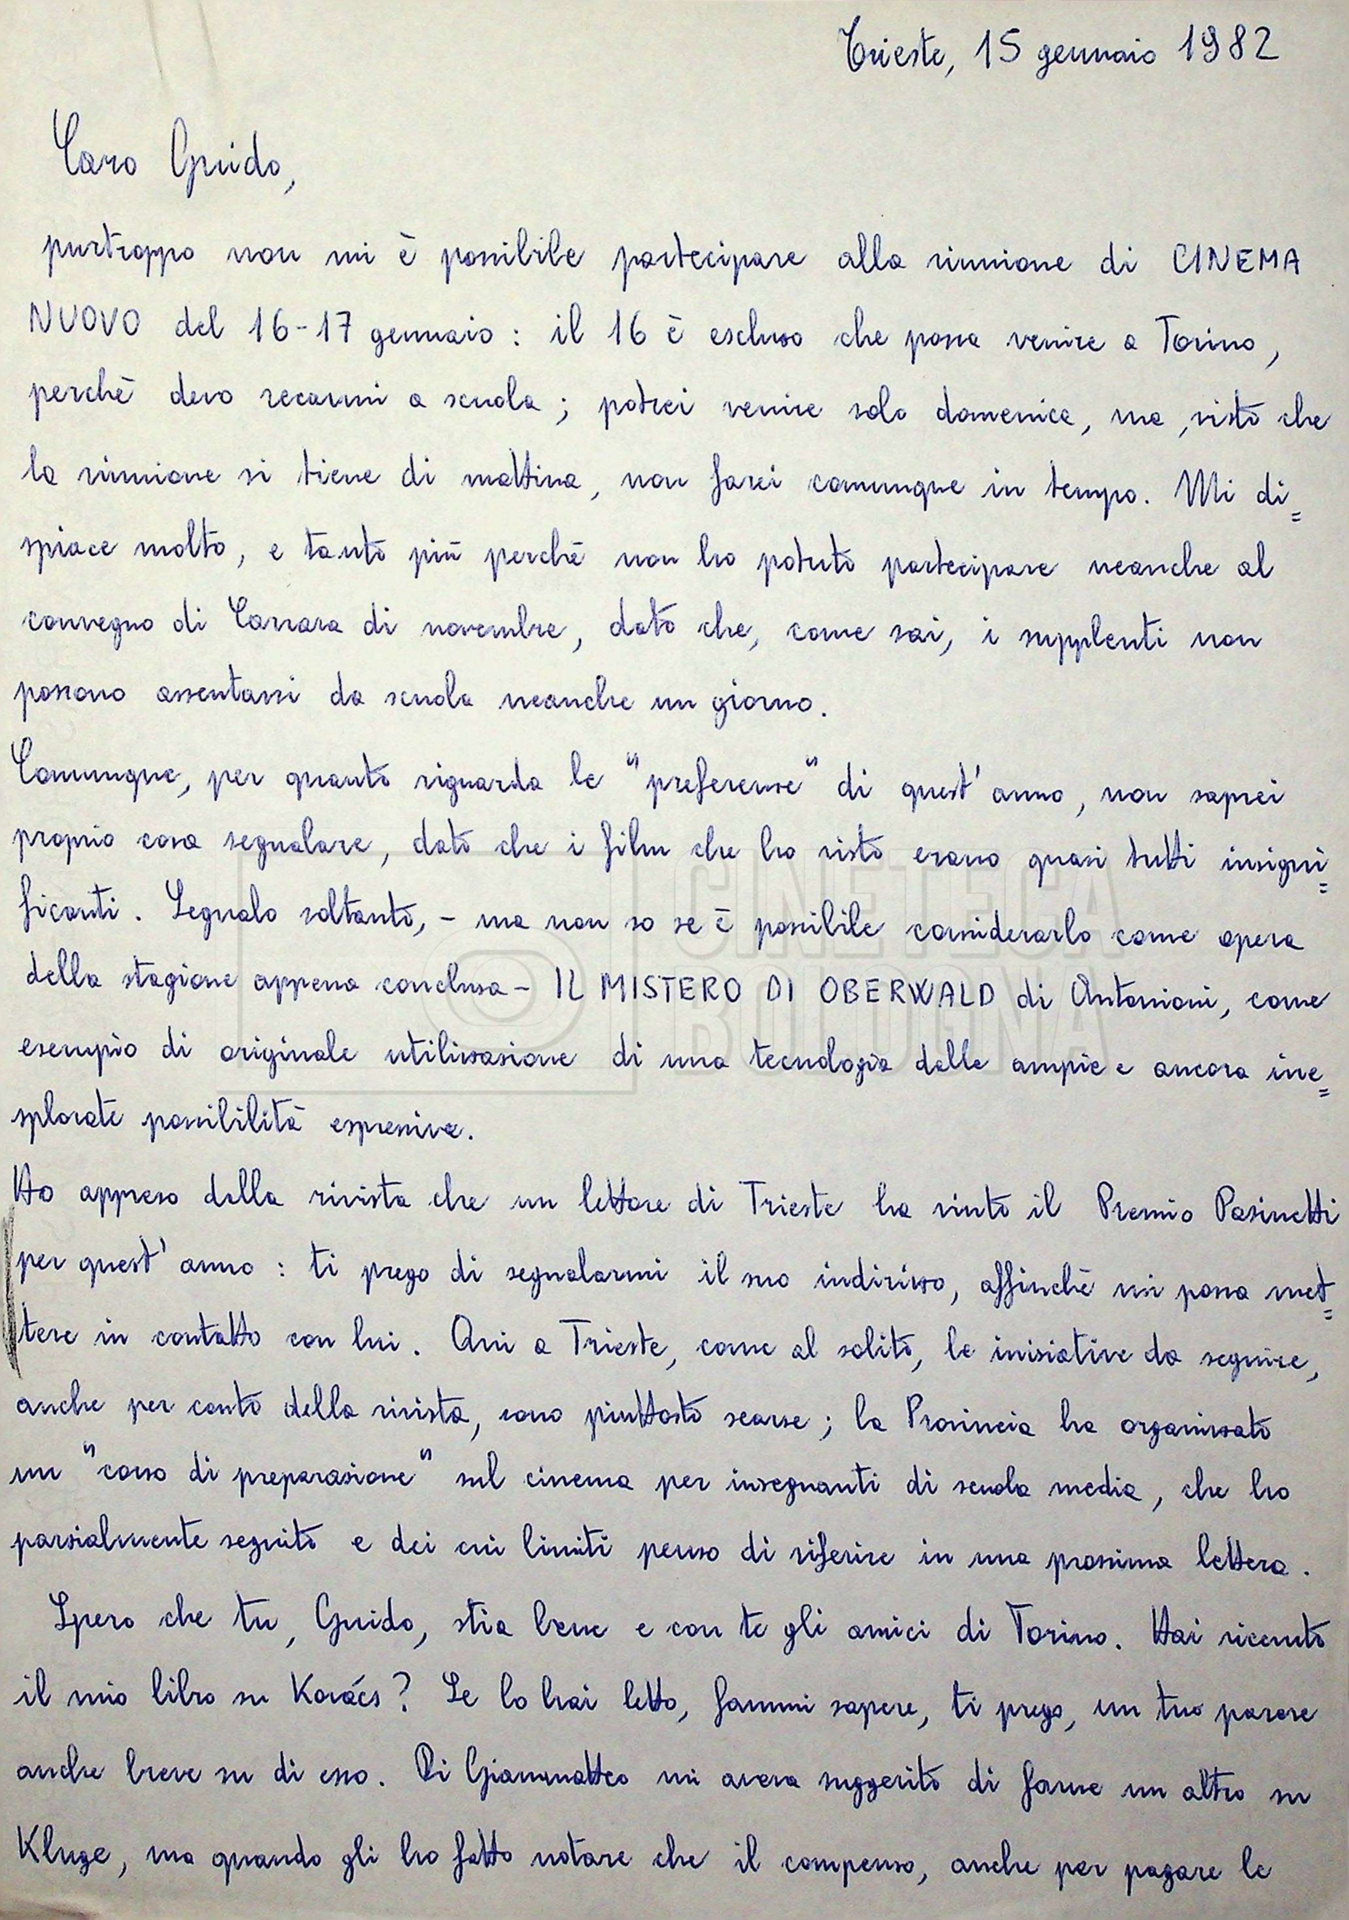 Trieste, 15 gennaio 1982
Caro Guido,
purtroppo non mi è possibile partecipare alla riunione di CINEMA
NUOVO del 16-17 gennaio: il 16 è escluso che possa venire a Torino,
perchè devo recarmi a scuola; potrei venire solo domenica, ma, visto che
la riunione si tiene di mattina, non farei comunque in tempo. Mi di=
spiace molto, e tanto più perchè non ho potuto partecipare neanche al
convegno di Carrara di novembre, dato che, come sai, i supplenti non
possono assentarsi da scuola neanche un giorno.
Comunque, per quanto riguarda le "preferenze" di quest'anno, non saprei
proprio cosa segnalare, dato che i film che ho visto erano quasi tutti insigni=
ficanti. Segnalo soltanto, - ma non so se è possibile considerarlo come opera
della stagione appena conclusa - IL MISTERO DI OBERWALD di Antonioni, come
esempio di originale utilizzazione di una tecnologia dalle ampie e ancora ine=
splorate possibilità espressive.
Ho appreso dalla rivista che un lettore di Trieste ha vinto il Premio Pasinetti
per quest'anno: ti prego di segnalarmi il suo indirizzo, affinchè mi possa met=
tere in contatto con lui. Qui a Trieste, come al solito, le iniziative da seguire,
anche per conto della rivista, sono piuttosto scarse; la Provincia ha organizzato
un "corso di preparazione" sul cinema per insegnanti di scuola media, che ho
parzialmente seguito e dei cui limiti penso di riferire in una prossima lettera.
Spero che tu, Guido, stia bene e con te gli amici di Torino. Hai ricevuto
il mio libro su Kovács? Se lo hai letto, fammi sapere, ti prego, un tuo parere
anche breve su di esso. Di Giammatteo mi aveva suggerito di farne un altro su
Kluge, ma quando gli ho fatto notare che il compenso, anche per pagare le
CINETECA
BOLOGNA